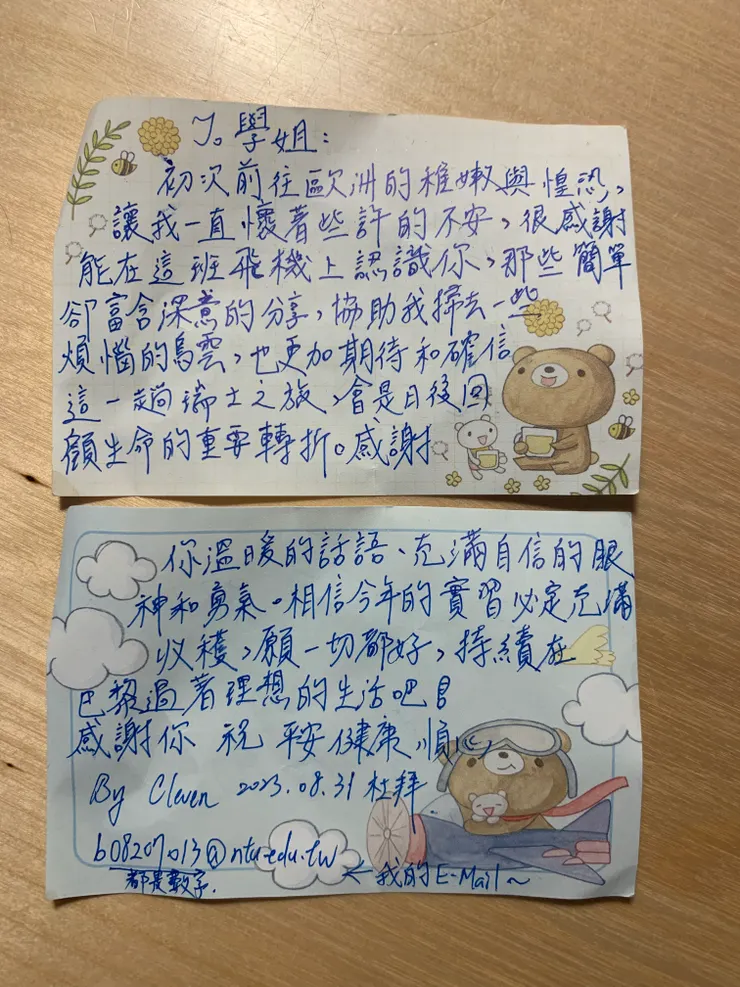 To 學姐：
初次前往歐洲的稚嫩與惶恐，
讓我一直懷著些許的不安，很感謝
能在這班飛機上認識你，那些簡單
卻富含深意的分享，協助我掃去一些
煩惱的烏雲，也更加期待和確信
這一趟瑞士之旅，會是日後回
顧生命的重要轉折。感謝
你溫暖的話語、充滿自信的眼
神和勇氣。相信今年的實習必定充滿
收穫，願一切都好，持續在
巴黎過著理想的生活吧！
感謝你 祝 平安健康，順心
By Cleven 2023.08.31 杜拜
b08207013@ntu.edu.tw
都是數字.
← 我的 E-Mail～